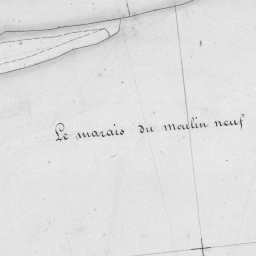 Le marais du moulin neuf